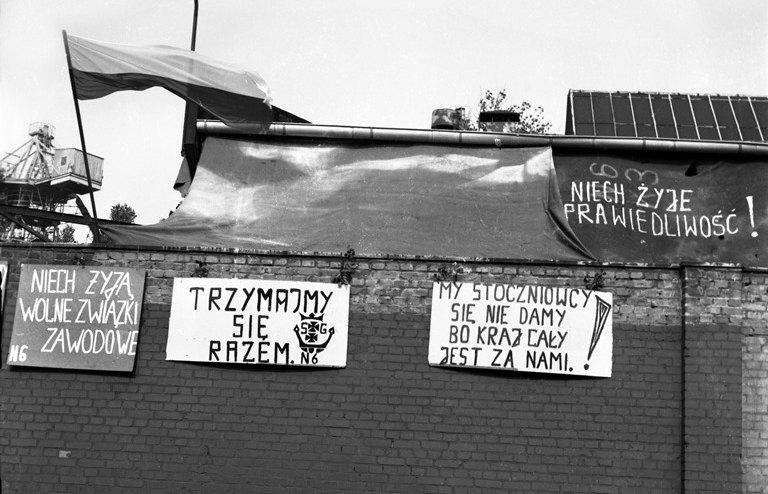 63
NIECH ŻYJE
PRAWIEDLIWOŚĆ!
NIECH ŻYJĄ
WOLNE ZWIĄZKI
ZAWODOWE
N6
TRZYMAJMY
SIĘ
RAZEM.
SG
N6
MY STOCZNIOWCY
SIĘ NIE DAMY
BO KRAJ CAŁY
JEST ZA NAMI.!